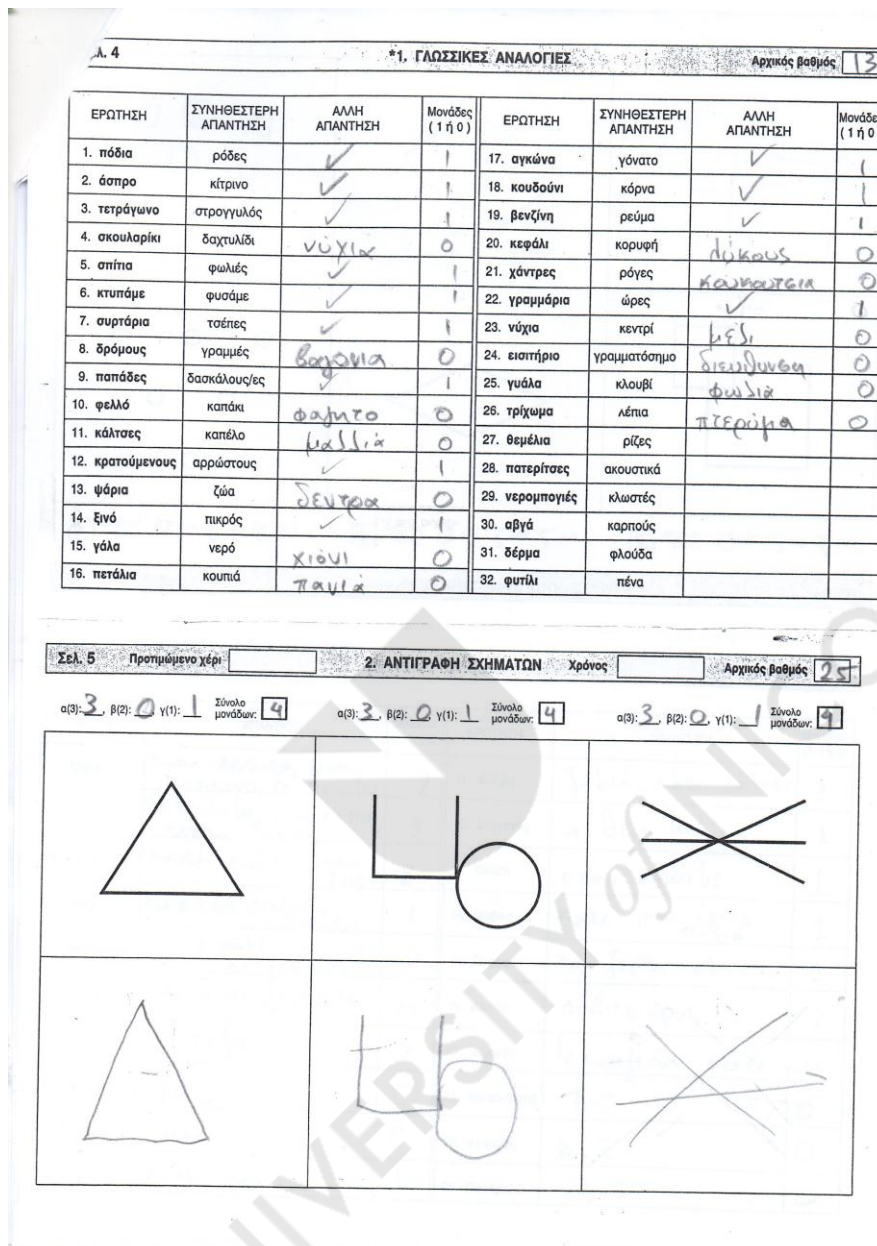 λ. 4 *1. ΓΛΩΣΣΙΚΕΣ ΑΝΑΛΟΓΙΕΣ Αρχικός βαθμός 13
ΕΡΩΤΗΣΗ ΣΥΝΗΘΕΣΤΕΡΗ ΑΠΑΝΤΗΣΗ ΑΛΛΗ ΑΠΑΝΤΗΣΗ Μονάδες (1 ή 0)
1. πόδια ρόδες ✓ 1
2. άσπρο κίτρινο ✓ 1
3. τετράγωνο στρογγυλός ✓ 1
4. σκουλαρίκι δαχτυλίδι νύχια 0
5. σπίτια φωλιές ✓ 1
6. κτυπάμε φυσάμε ✓ 1
7. συρτάρια τσέπες ✓ 1
8. δρόμους γραμμές βαγόνια 0
9. παπάδες δασκάλους/ες ✓ 1
10. φελλό καπάκι φαγητο 0
11. κάλτσες καπέλο μαλλιά 0
12. κρατούμενους αρρώστους ✓ 1
13. ψάρια ζώα δεντρα 0
14. ξινό πικρός ✓ 1
15. γάλα νερό χιόνι 0
16. πετάλια κουπιά πανιά 0
ΕΡΩΤΗΣΗ ΣΥΝΗΘΕΣΤΕΡΗ ΑΠΑΝΤΗΣΗ ΑΛΛΗ ΑΠΑΝΤΗΣΗ Μονάδε (1 ή 0
17. αγκώνα γόνατο ✓ 1
18. κουδούνι κόρνα ✓ 1
19. βενζίνη ρεύμα ✓ 1
20. κεφάλι κορυφή λύκους 0
21. χάντρες ρόγες κουκουτσια 0
22. γραμμάρια ώρες ✓ 1
23. νύχια κεντρί μέλι 0
24. εισιτήριο γραμματόσημο διευθυνση 0
25. γυάλα κλουβί φωλιά 0
26. τρίχωμα λέπια πτερώμα 0
27. θεμέλια ρίζες
28. πατερίτσες ακουστικά
29. νερομπογιές κλωστές
30. αβγά καρπούς
31. δέρμα φλούδα
32. φυτίλι πένα
Σελ. 5 Προτιμώμενο χέρι 2. ΑΝΤΙΓΡΑΦΗ ΣΧΗΜΑΤΩΝ Χρόνος Αρχικός βαθμός 25
α(3): 3, β(2): 0 γ(1): 1 Σύνολο μονάδων: 4 α(3): 3, β(2): 0 γ(1): 1 Σύνολο μονάδων: 4 α(3): 3, β(2): 0, γ(1): 1 Σύνολο μονάδων: 4
UNIVERSITY of NICO